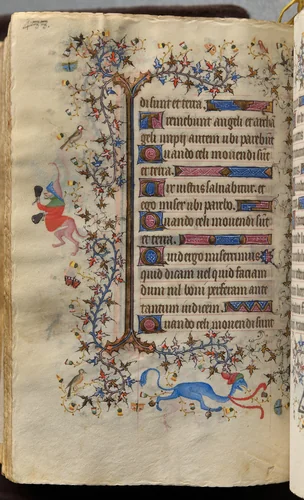 di sunt et terra.
Tremebunt angeli et archa
geli impij autem ubi parebūt
Quando celi mouendi sūt
et terra.
Vir iustus saluabitur et
ego miser ubi parebo.
Quando celi mouendi sūt
et terra.
Quid ergo miserrimus
quid dicam uel quid faciam
dum nil boni perferam ante
tantum iudicem.
Quando celi mouendi sunt